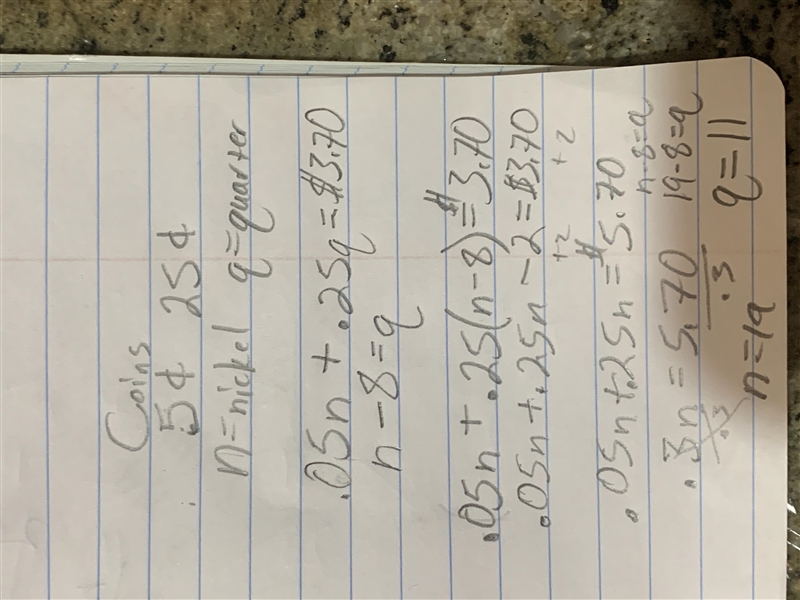 Coins
5¢ 25¢
n=nickel q=quarter
.05n + .25q = $3.70
n-8=q
.05n + .25(n-8) = $3.70
.05n + .25n - 2 = $3.70
+2 +2
.05n + .25n = $5.70
n-8=q
.3n = 5.70 19-8=q
.3 .3
n=19 q=11